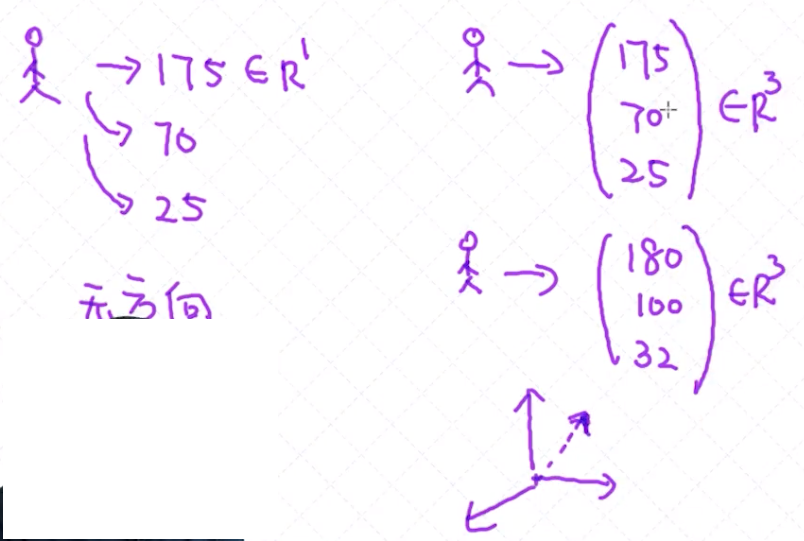 → 175 ∈ R¹
→ 70
→ 25
无方向
→ (175
70
25) ∈ R³
→ (180
100
32) ∈ R³